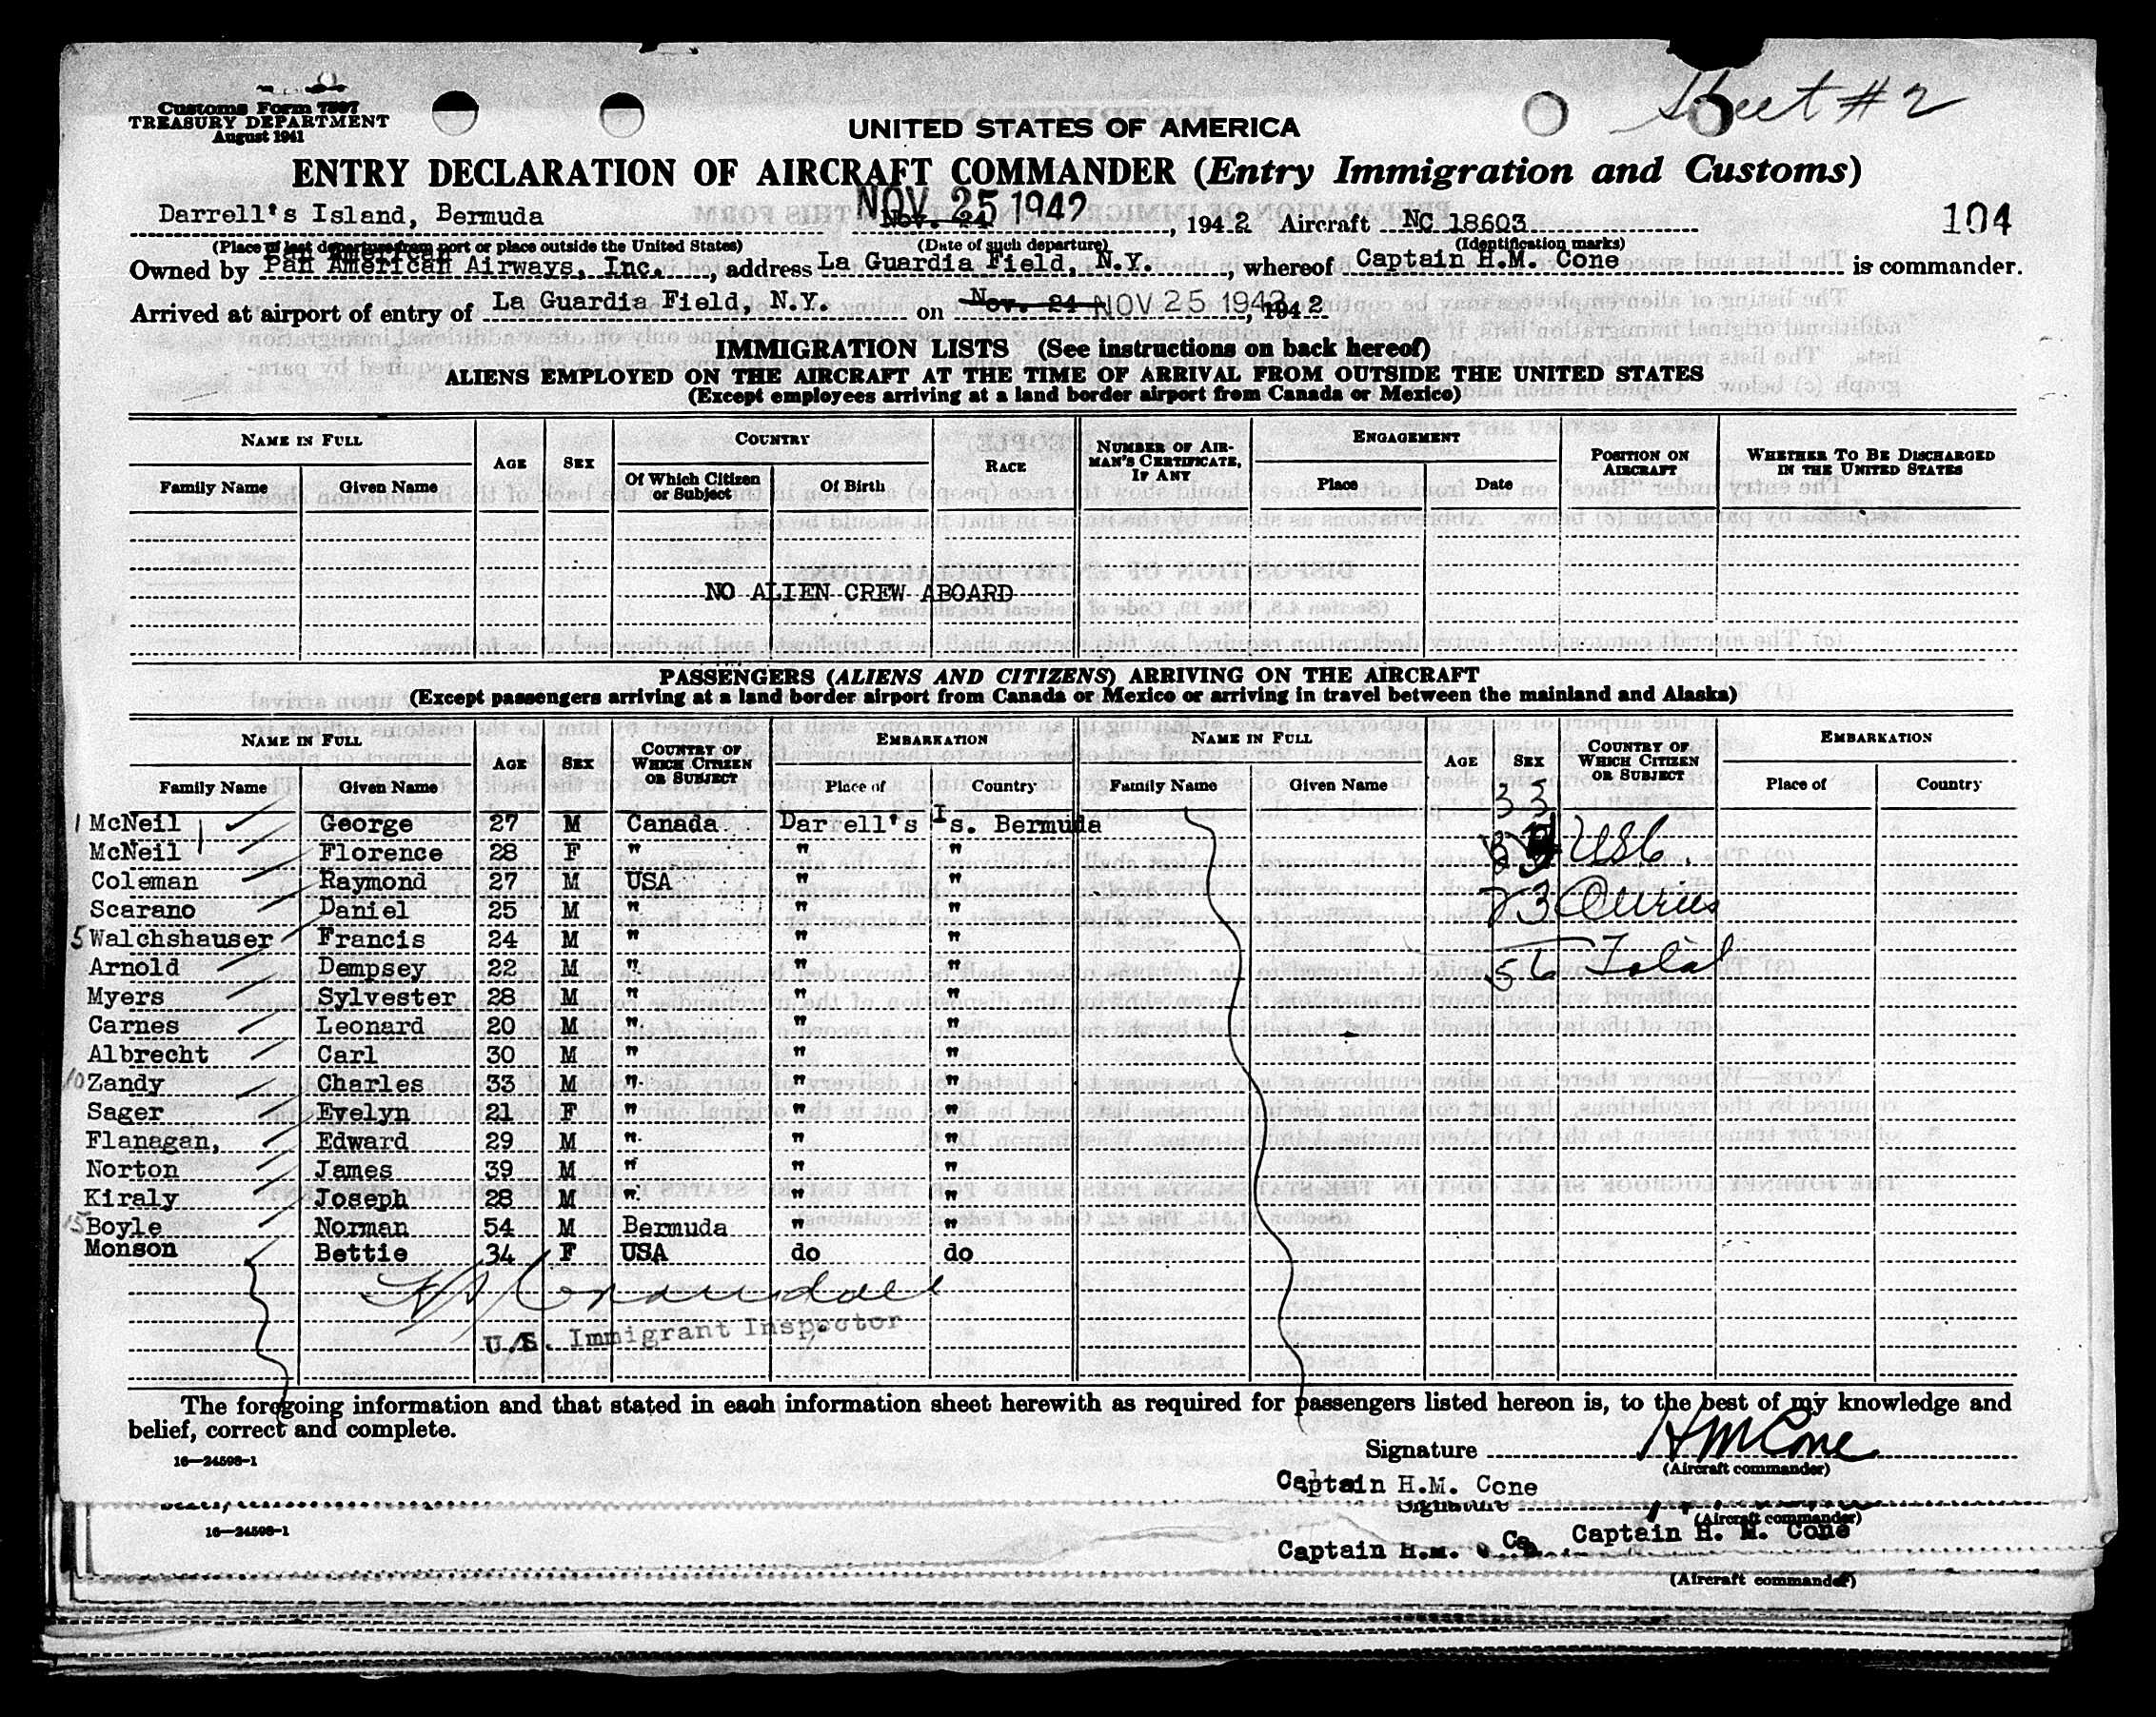 Sheet #2
Customs Form 7507
TREASURY DEPARTMENT
August 1941
UNITED STATES OF AMERICA
ENTRY DECLARATION OF AIRCRAFT COMMANDER (Entry Immigration and Customs)
104
Darrell's Island, Bermuda NOV 25 1942 Nov. 24, 1942 Aircraft NC 18603
(Place of last departure from port or place outside the United States) (Date of such departure) (Identification marks)
Owned by Pan American Airways, Inc., address La Guardia Field, N.Y., whereof Captain H.M. Cone is commander.
Arrived at airport of entry of La Guardia Field, N.Y. on Nov. 24 NOV 25 1942, 1942
IMMIGRATION LISTS (See instructions on back hereof)
ALIENS EMPLOYED ON THE AIRCRAFT AT THE TIME OF ARRIVAL FROM OUTSIDE THE UNITED STATES
(Except employees arriving at a land border airport from Canada or Mexico)
NAME IN FULL AGE SEX COUNTRY RACE NUMBER OF AIRMAN'S CERTIFICATE, IF ANY ENGAGEMENT POSITION ON AIRCRAFT WHETHER TO BE DISCHARGED IN THE UNITED STATES
Family Name Given Name Of Which Citizen or Subject Of Birth Place Date
NO ALIEN CREW ABOARD
PASSENGERS (ALIENS AND CITIZENS) ARRIVING ON THE AIRCRAFT
(Except passengers arriving at a land border airport from Canada or Mexico or arriving in travel between the mainland and Alaska)
NAME IN FULL AGE SEX COUNTRY OF WHICH CITIZEN OR SUBJECT EMBARKATION NAME IN FULL AGE SEX COUNTRY OF WHICH CITIZEN OR SUBJECT EMBARKATION
Family Name Given Name Place of Country Family Name Given Name Place of Country
1 McNeil George 27 M Canada Darrell's Is. Bermuda 33
McNeil Florence 28 F " " " USC.
Coleman Raymond 27 M USA " "
Scarano Daniel 25 M " " " 23 Aliens
5 Walchshauser Francis 24 M " " "
Arnold Dempsey 22 M " " " 56 Total
Myers Sylvester 28 M " " "
Carnes Leonard 20 M " " "
Albrecht Carl 30 M " " "
10 Zandy Charles 33 M " " "
Sager Evelyn 21 F " " "
Flanagan, Edward 29 M " " "
Norton James 39 M " " "
Kiraly Joseph 28 M " " "
15 Boyle Norman 54 M Bermuda " "
Monson Bettie 34 F USA do do
Crandall
U.S. Immigrant Inspector
The foregoing information and that stated in each information sheet herewith as required for passengers listed hereon is, to the best of my knowledge and
belief, correct and complete.
Signature H M Cone
16—24598-1
(Aircraft commander)
Captain H.M. Cone
Signature
16—24598-1
(Aircraft commander)
Captain H. M. Cone
Captain H.M.
(Aircraft commander)